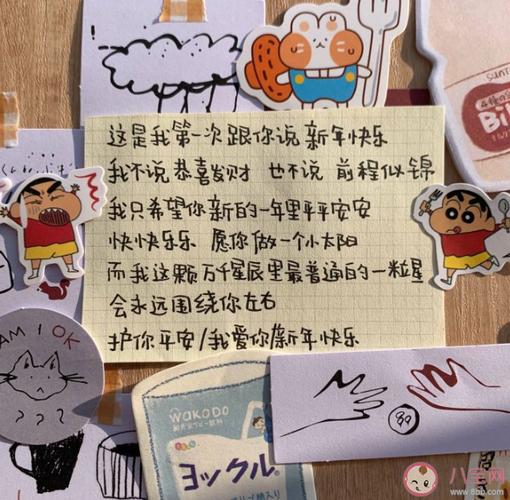 这是我第一次跟你说 新年快乐
我不说 恭喜发财 也不说 前程似锦
我只希望你新的一年里平平安安
快快乐乐 愿你做一个小太阳
而我这颗万千星辰里最普通的一粒星
会永远围绕你左右
护你平安/我爱你/新年快乐
AM I OK
? ? ?
wakodo
ヨックル
八宝网
www.8bb.com